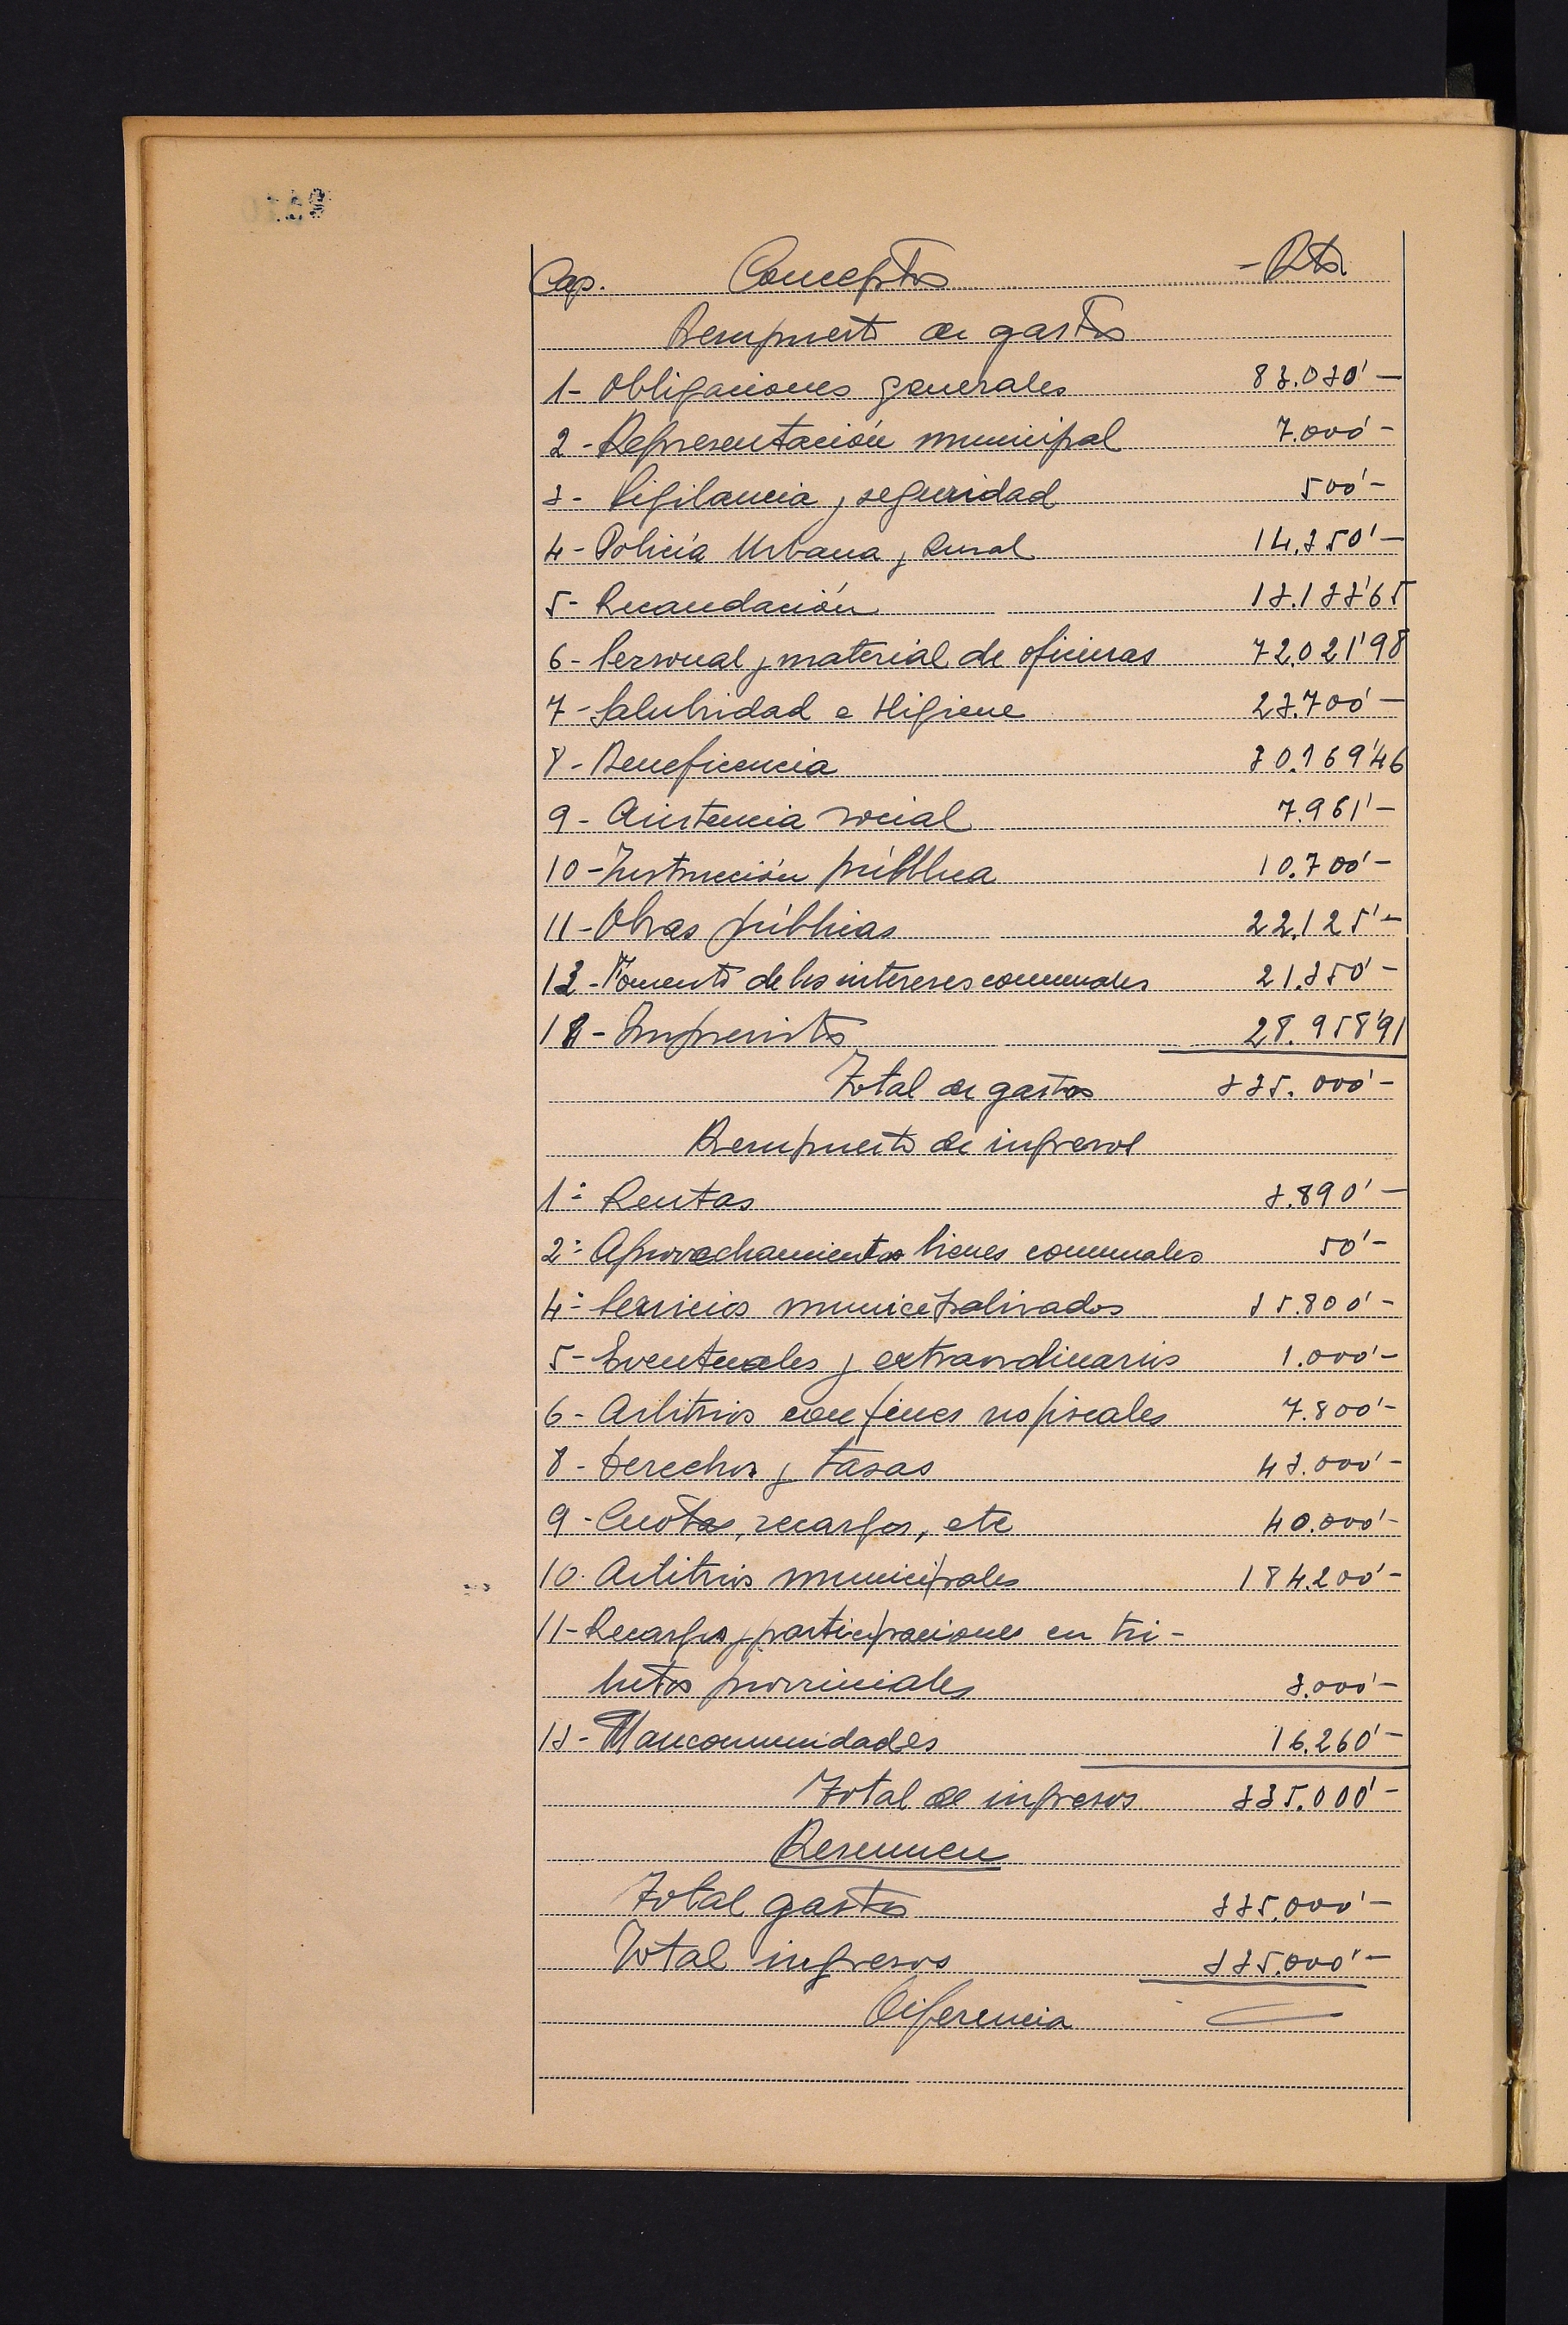 Cap. Conceptos - Pts
Presupuesto de gastos
1- Obligaciones generales 83.030'-
2- Representación municipal 7.000'-
3- Vigilancia y seguridad 500'-
4- Policía Urbana y Rural 14.350'-
5- Recaudación 13.133'65
6- Personal y material de oficinas 72.021'98
7- Salubridad e Higiene 23.700'-
8- Beneficencia 30.169'46
9- Asistencia social 7.961'-
10- Instrucción pública 10.700'-
11- Obras públicas 22.125'-
13- Fomento de los intereses comunales 21.350'-
18- Imprevistos 28.958'91
Total de gastos 335.000'-
Presupuesto de ingresos
1º Rentas 3.890'-
2º Aprovechamientos bienes comunales 50'-
4º Servicios municipalizados 35.800'-
5- Eventuales y extraordinarios 1.000'-
6- Arbitrios con fines no fiscales 7.800'-
8- Derechos y tasas 43.000'-
9- Cuotas, recargos, etc 40.000'-
10. Arbitrios municipales 184.200'-
11- Recargos y participaciones en tri-
butos provinciales 3.000'-
13- Mancomunidades 16.260'-
Total de ingresos 335.000'-
Resumen
Total gastos 335.000'-
Total ingresos 335.000'-
Diferencia